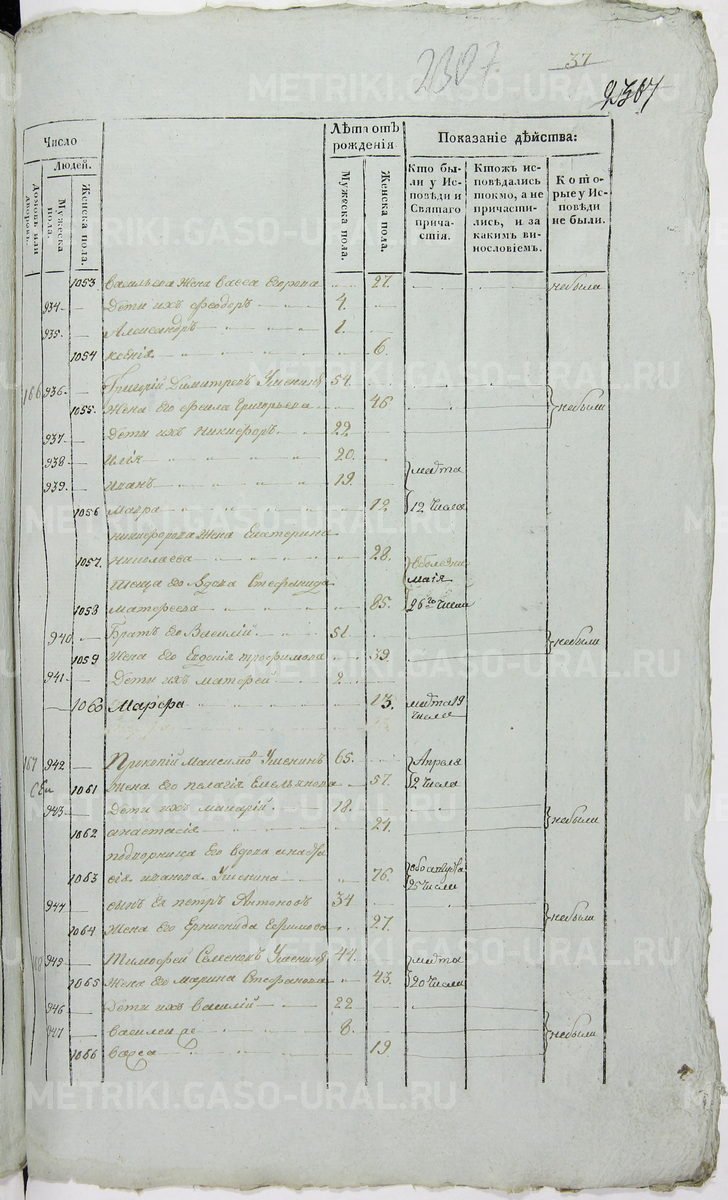 2307
37
2307
Число
Людей.
Домовъ или дворовъ.
Мужеска пола.
Женска пола.
Лѣта отъ рожденія
Мужеска пола.
Женска пола.
Показаніе дѣйства:
Кто были у Исповѣди и Святаго причастія.
Ктожъ исповѣдались токмо, а не причастились, и за какимъ винословіемъ.
Которые у Исповѣди не были.
1053 Васильева жена Васса Егорова 27. небыла
934 Дети ихъ Феодоръ 4.
935. Александръ 1.
1054 Ксенія 6.
166 936 Григорій Димитревъ 54.
1055. Жена его Григорьева 46 небыли
937 Дети ихъ Никифоръ 22
938 Илія 20.
939. Иванъ 19. марта
1056 Мавра 12 12 числа
Никифорова жена Екатерина
1057. Николаева 28.
Теща его вдова Стефанида маія
1058 Матфеева 85. 26го числа
940. Братъ его Василій 51. небыли
1059 Жена его Евдокія Трофимова 39.
941 Дети ихъ Матфей 2
1060 Марфа 13. марта 19 числа
167 942 Прокопій Максимо 65. Апреля
1061 Жена его Пелагія Емельянова 57. 2 числа
943 Дети ихъ Макарій. 18.
1062 Анастасія 24. небыли
его вдова Анаста
1063 сія Иванова 76. 25 числа
944 Сынъ ея Петръ Антоновъ 34
1064 Жена его Ефимова 27. небыли
945 Тимофей 44. марта
1065 Жена его Марина Стефанова 43. 20 числа
946 Дети ихъ Василій 22
947 Василей 8. небыли
1066 Васса 19
METRIKI.GASO-URAL.RU